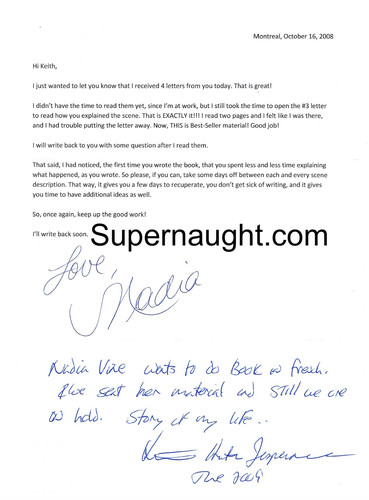 Montreal, October 16, 2008
Hi Keith,
I just wanted to let you know that I received 4 letters from you today. That is great!
I didn't have the time to read them yet, since I'm at work, but I still took the time to open the #3 letter
to read how you explained the scene. That is EXACTLY it!!! I read two pages and I felt like I was there,
and I had trouble putting the letter away. Now, THIS is Best-Seller material! Good job!
I will write back to you with some question after I read them.
That said, I had noticed, the first time you wrote the book, that you spent less and less time explaining
what happened, as you wrote. So please, if you can, take some days off between each and every scene
description. That way, it gives you a few days to recuperate, you don't get sick of writing, and it gives
you time to have additional ideas as well.
So, once again, keep up the good work!
I'll write back soon.
Supernaught.com
Love,
Nadia
Nadia wants to do Book on fresh.
sent her material and still we are
on hold. Story of my life..
Hunter Jesperson
2009